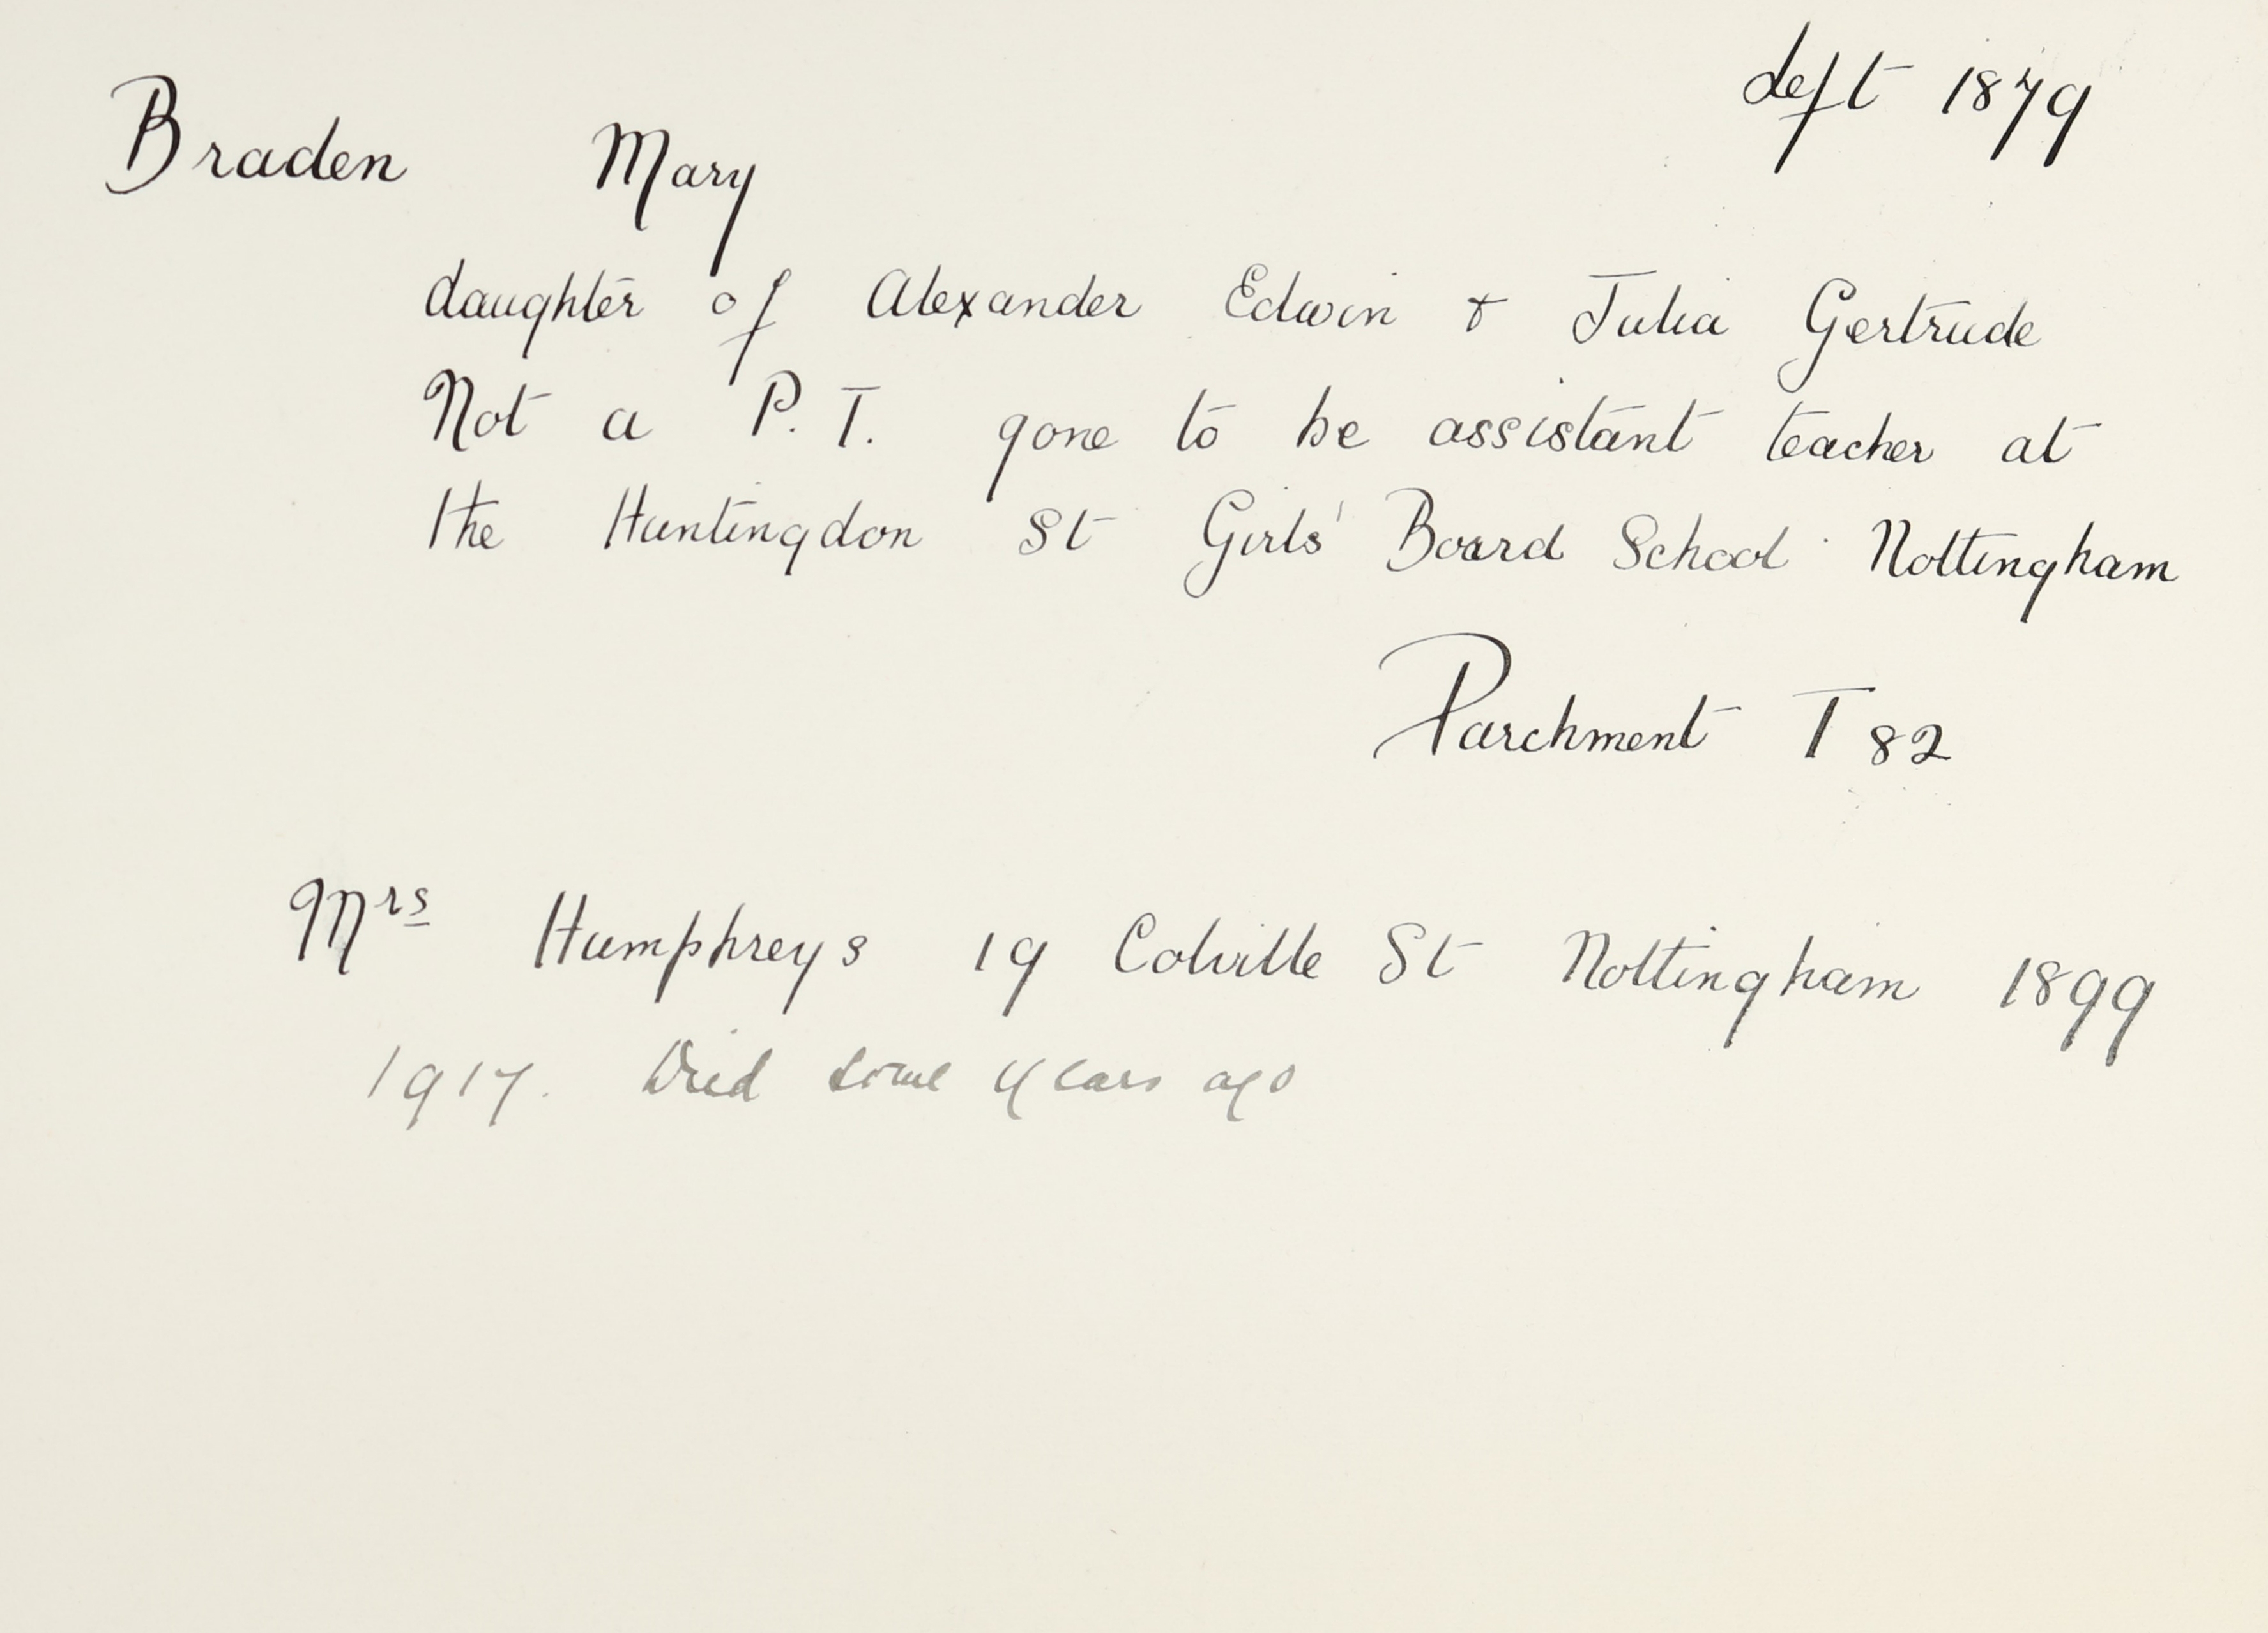 left 1879
Braden Mary
daughter of Alexander Edwin & Julia Gertrude
Not a P. T. gone to be assistant teacher at
the Huntingdon St Girls' Board School Nottingham
Parchment T 82
Mrs Humphreys 19 Colville St Nottingham 1899
1917. Died some years ago